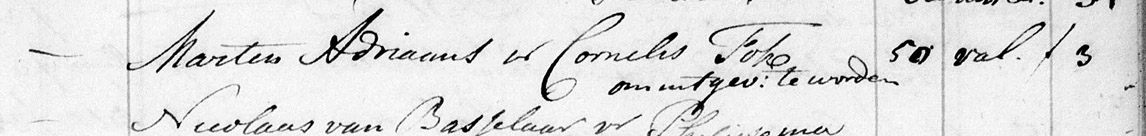 Marten Adriaans vr Cornelis Joh 50 val. f 3
om uitgev: te worden
Nicolaas van Basselaar vr